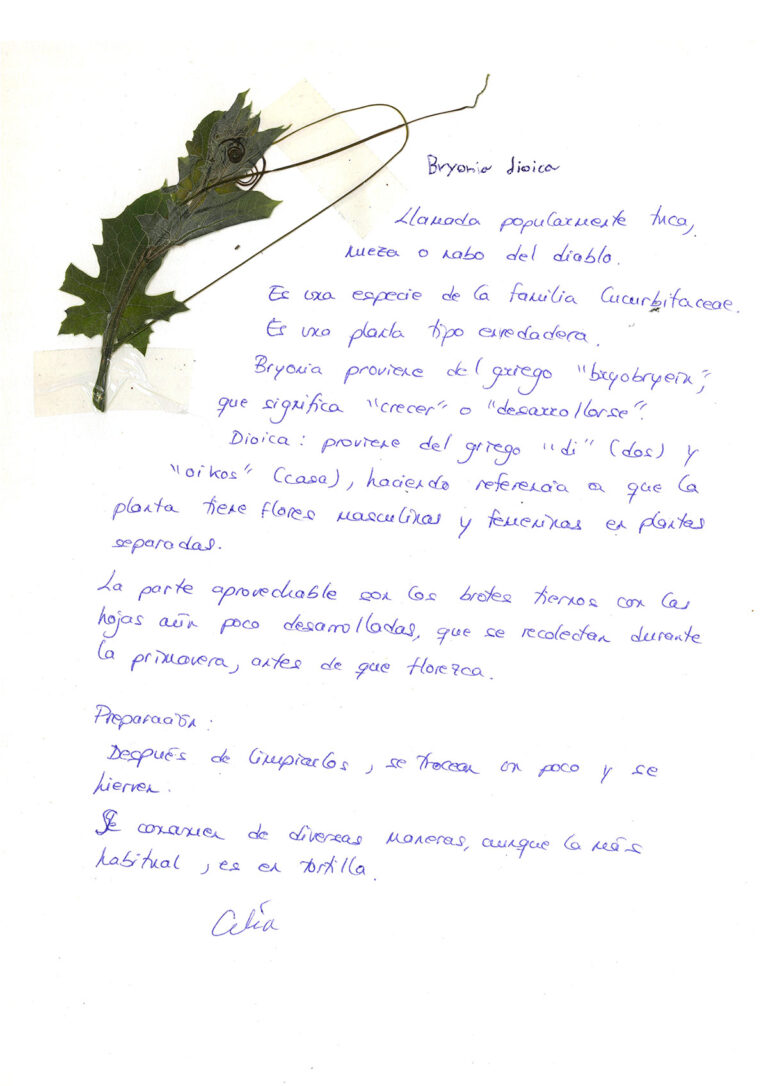 Bryonia dioica
Llamada popularmente tuca,
nueza o nabo del diablo.
Es una especie de la familia Cucurbitaceae.
Es una planta tipo enredadera.
Bryonia proviene del griego "bryobryein",
que significa "crecer" o "desarrollarse".
Dioica: proviene del griego "di" (dos) y
"oikos" (casa), haciendo referencia a que la
planta tiene flores masculinas y femeninas en plantas
separadas.
La parte aprovechable son los brotes tiernos con las
hojas aún poco desarrolladas, que se recolectan durante
la primavera, antes de que florezca.
Preparación:
Después de limpiarlos, se trocean un poco y se
hierven.
Se consumen de diversas maneras, aunque la más
habitual, es en tortilla.
Celia